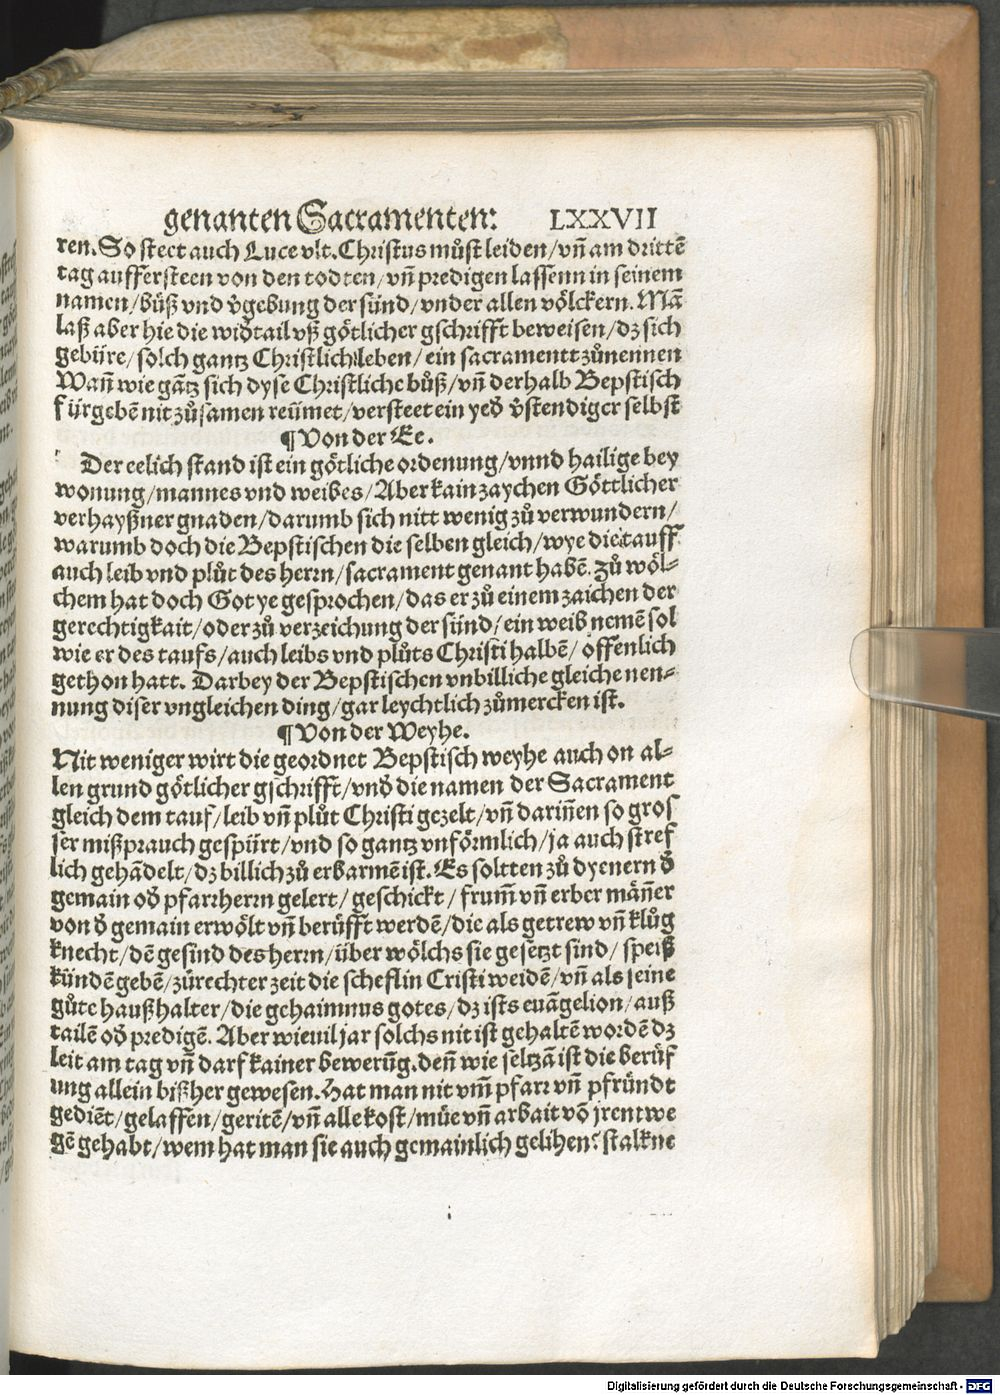 genanten Sacramenten: LXXVII
ren. So stect auch Luce vlt. Christus můst leiden/ vn̄ am drittē
tag auffersteen von den todten/ vn̄ predigen lassenn in seinem
namen/ bůß vnd v̄gebung der sünd/ vnder allen völckern. Mā
laß aber hie die wid̄tail vß götlicher gschrifft beweisen/ dz sich
gebüre/ solch gantz Christlich leben/ ein sacramentt zůnennen
Wan̄ wie gātz sich dyse Christliche bůß/ vn̄ derhalb Bepstisch
fürgebē nit zůsamen reümet/ versteet ein yed̄ v̄stendiger selbst
¶ Von der Ee.
Der eelich stand ist ein götliche ordenung/ vnnd hailige bey
wonung/ mannes vnd weibes/ Aber kain zaychen Göttlicher
verhayßner gnaden/ darumb sich nitt wenig zů verwundern/
warumb doch die Bepstischen die selben gleich/ wye die tauff
auch leib vnd plůt des herrn/ sacrament genant habē. zů wöl-
chem hat doch Got ye gesprochen/ das er zů einem zaichen der
gerechtigkait/ oder zů verzeichung der sünd/ ein weib nemē sol
wie er des taufs/ auch leibs vnd plůts Christi halbē/ offenlich
gethon hatt. Darbey der Bepstischen vnbilliche gleiche nen-
nung diser vngleichen ding/ gar leychtlich zůmercken ist.
¶ Von der Weyhe.
Nit weniger wirt die geordnet Bepstisch weyhe auch on al-
len grund götlicher gschrifft/ vnd̄ die namen der Sacrament
gleich dem tauf/ leib vn̄ plůt Christi gezelt/ vn̄ darin̄en so gros
ser mißprauch gespürt/ vnd so gantz vnförmlich/ ja auch stref
lich gehādelt/ dz billich zů erbarmē ist. Es soltten zů dyenern d̄
gemain od̄ pfarrherrn gelert/ geschickt/ frum̄ vn̄ erber mān̄er
von d̄ gemain erwölt vn̄ berüfft werdē/ die als getrew vn̄ klůg
knecht/ dē gesind des herrn/ über wölchs sie gesetzt sind/ speiß
kündē gebē/ zů rechter zeit die scheflin Cristi weidē/ vn̄ als seine
gůte haußhalter/ die gehaimnus gotes/ dz ists euāgelion/ auß
tailē od̄ predigē. Aber wieuil jar solchs nit ist gehaltē wordē dz
leit am tag vn̄ darf kainer bewerūg. den̄ wie seltzā ist die berüf
ung allein bißher gewesen. Hat man nit vm̄ pfarr vn̄ pfründt
gediēt/ gelaffen/ geritē/ vn̄ alle kost/ müe vn̄ arbait vō jrentwe
gē gehabt/ wem hat man sie auch gemainlich gelihen? stalkne
Digitalisierung gefördert durch die Deutsche Forschungsgemeinschaft - DFG